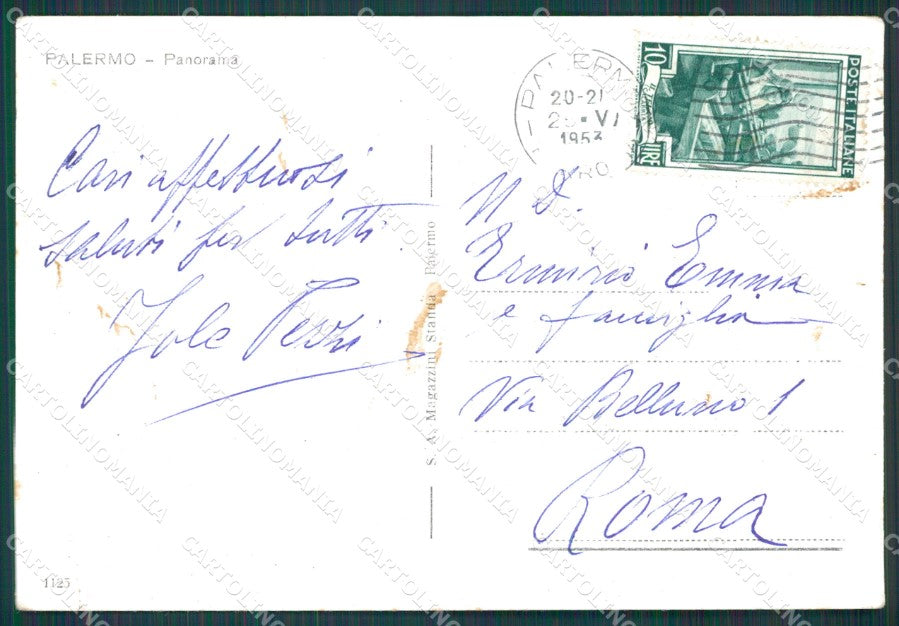 PALERMO – Panorama
Cari affettuosi
saluti per tutti
Jole Pezzi
1125
S. A. Magazzini Standa - Palermo
PALERMO
20-21
VI
1953
10
LIRE
POSTE ITALIANE
N. D.
Erminia Emma
e famiglia
Via Belluno 1
Roma
CARTOLINOMANIA